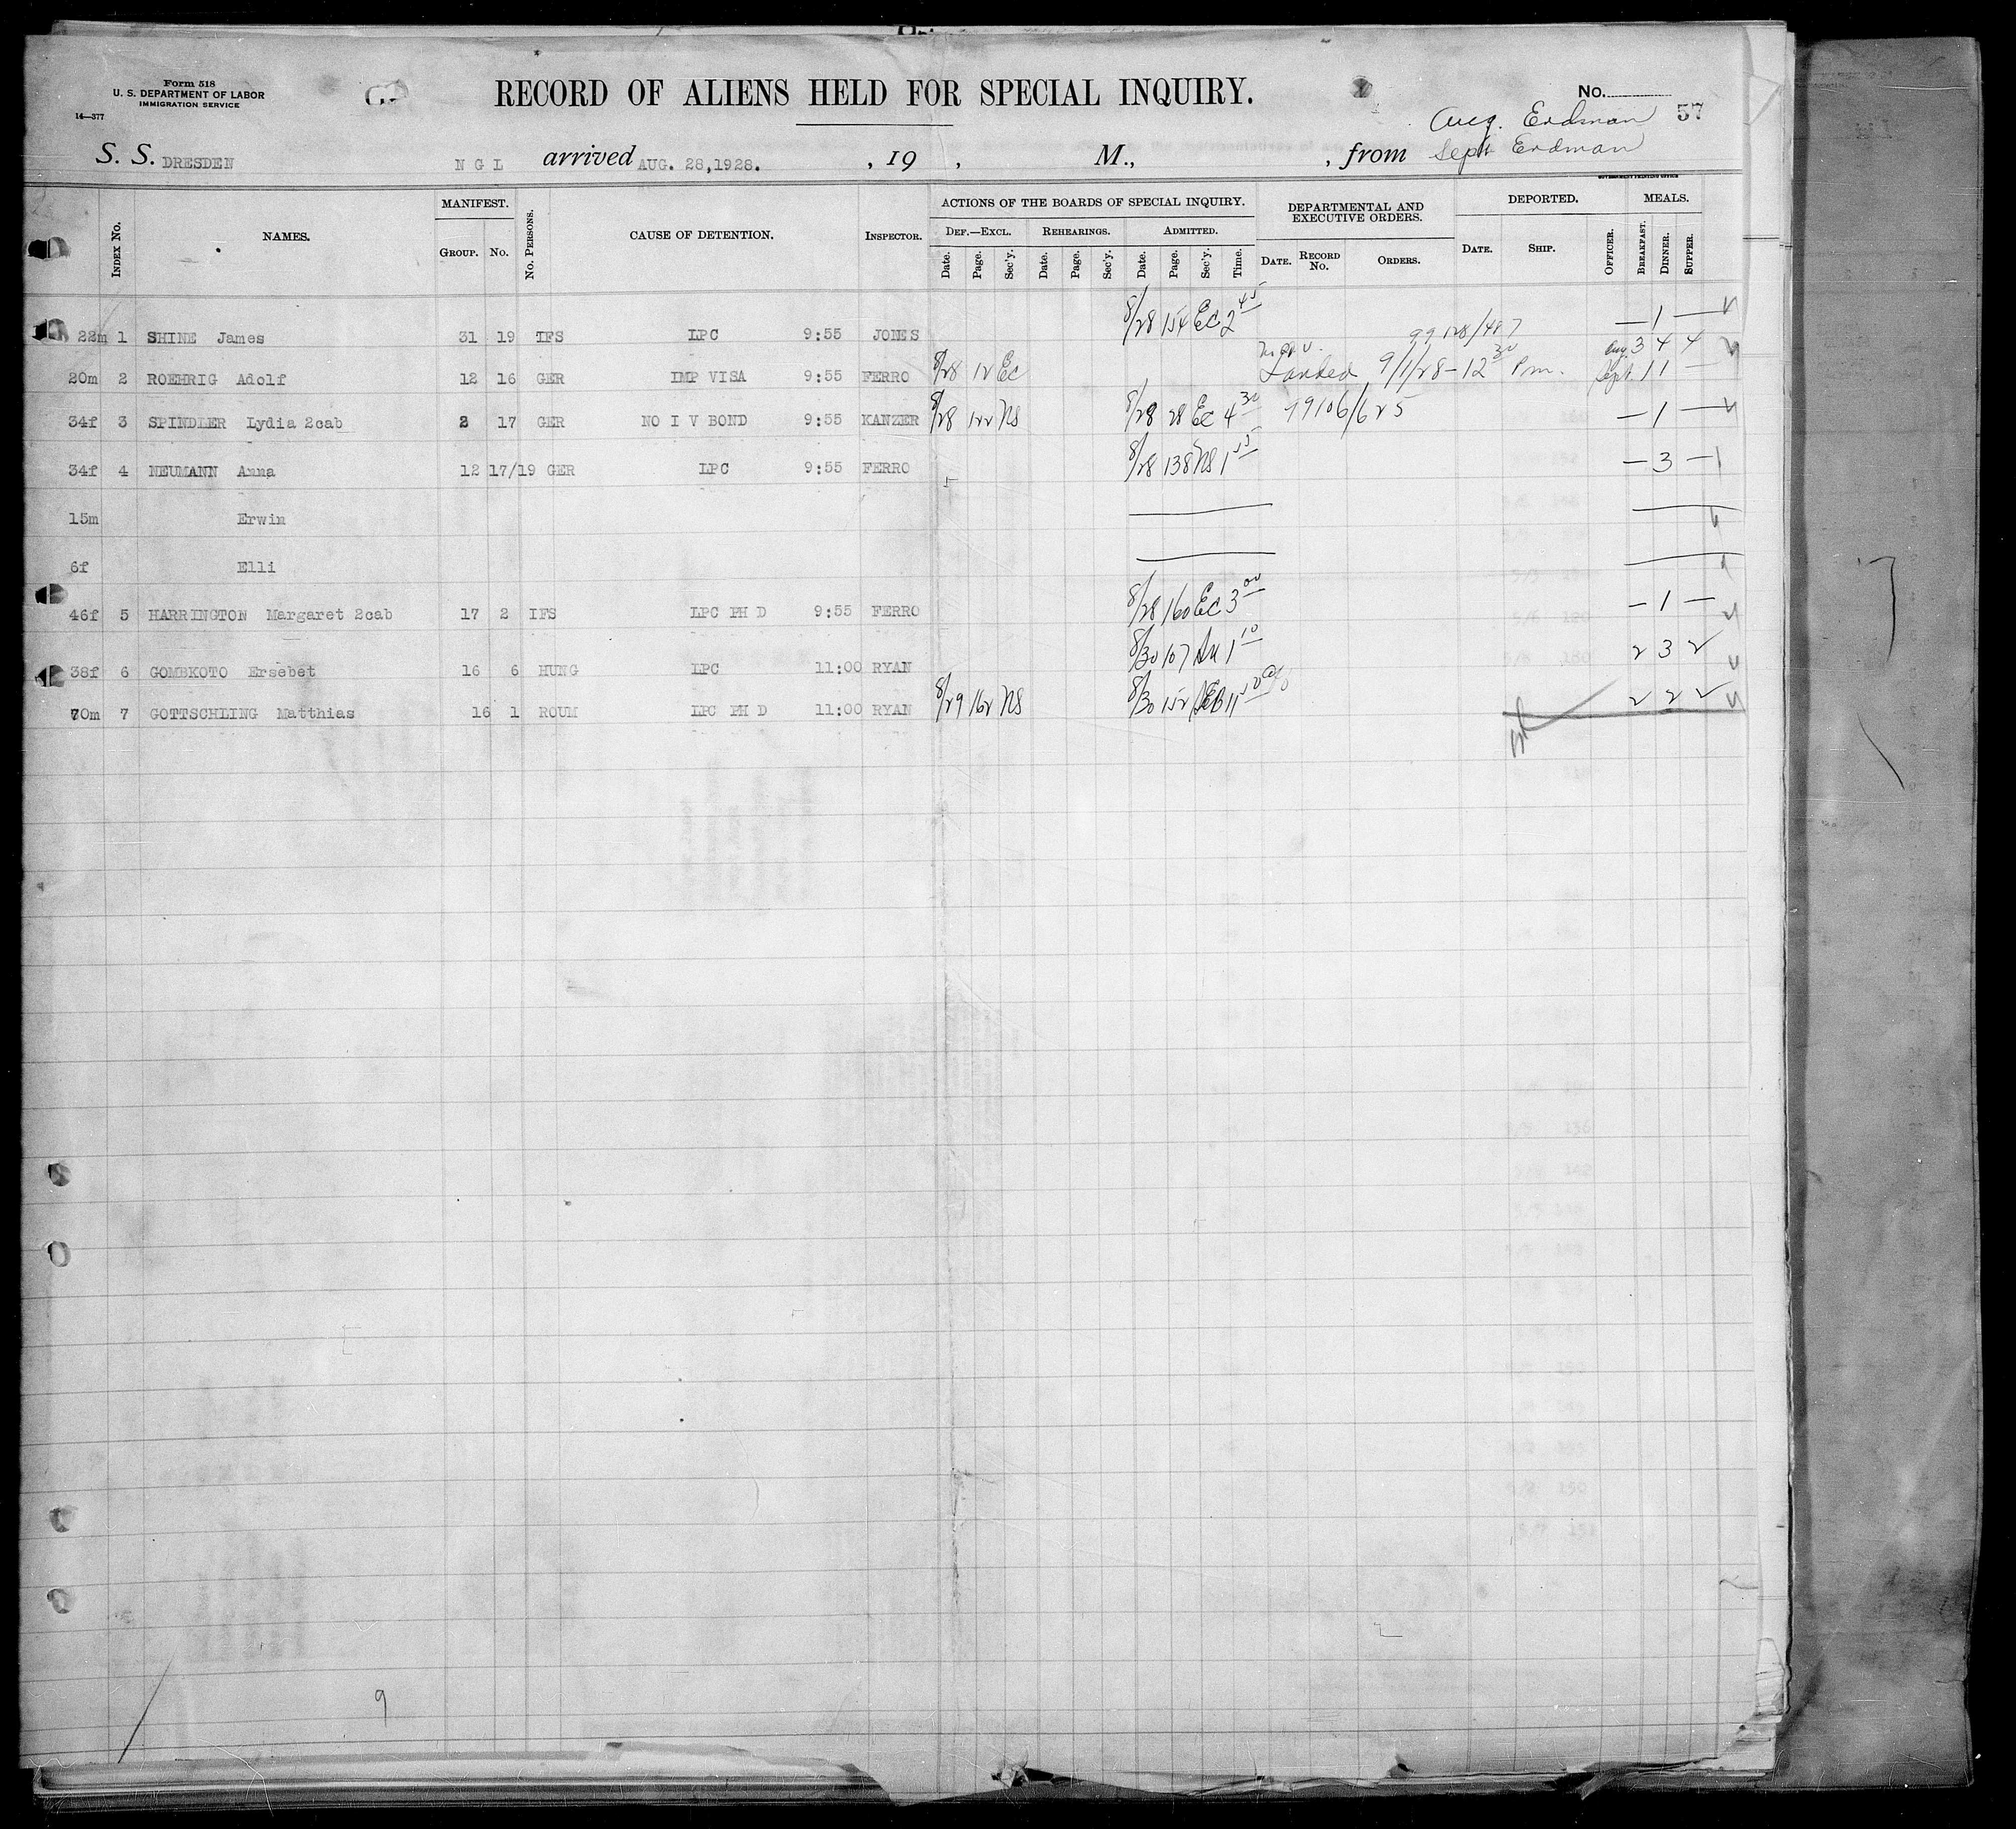 Form 518
U. S. DEPARTMENT OF LABOR
IMMIGRATION SERVICE
14—377
RECORD OF ALIENS HELD FOR SPECIAL INQUIRY.
No.
57
Aug. Erdman
S. S. DRESDEN N G L arrived AUG. 28,1928. , 19 , M., , from Sept Erdman
GOVERNMENT PRINTING OFFICE
Index No. NAMES. MANIFEST. No. Persons. CAUSE OF DETENTION. Inspector. ACTIONS OF THE BOARDS OF SPECIAL INQUIRY. DEPARTMENTAL AND EXECUTIVE ORDERS. DEPORTED. Officer. MEALS.
Group. No. Def.—Excl. Rehearings. Admitted. Date. Record No. Orders. Date. Ship. Breakfast. Dinner. Supper.
Date. Page. Sec'y. Date. Page. Sec'y. Date. Page. Sec'y. Time.
22m 1 SHINE James 31 19 IFS LPC 9:55 JONES 8/28 154 EC 2 45 — 1 —
99128/487
20m 2 ROEHRIG Adolf 12 16 GER IMP VISA 9:55 FERRO 8/28 12 EC Landed 9/1/28 - 12 30 Pm. Aug. 3 4 4
Sept. 1 1 —
34f 3 SPINDLER Lydia 2cab 2 17 GER NO I V BOND 9:55 KANZER 8/28 122 NS 8/28 28 EC 4 30 99106/625 — 1 —
34f 4 NEUMANN Anna 12 17/19 GER LPC 9:55 FERRO 8/28 138 NS 1 55 — 3 —
15m Erwin
6f Elli
46f 5 HARRINGTON Margaret 2cab 17 2 IFS LPC PH D 9:55 FERRO 8/28 160 EC 3 00 — 1 —
38f 6 GOMBKOTO Ersebet 16 6 HUNG LPC 11:00 RYAN 8/30 107 1 10 2 3 2
70m 7 GOTTSCHLING Matthias 16 1 ROUM LPC PH D 11:00 RYAN 8/29 162 NS 8/30 152 11 50 2 2 2
9